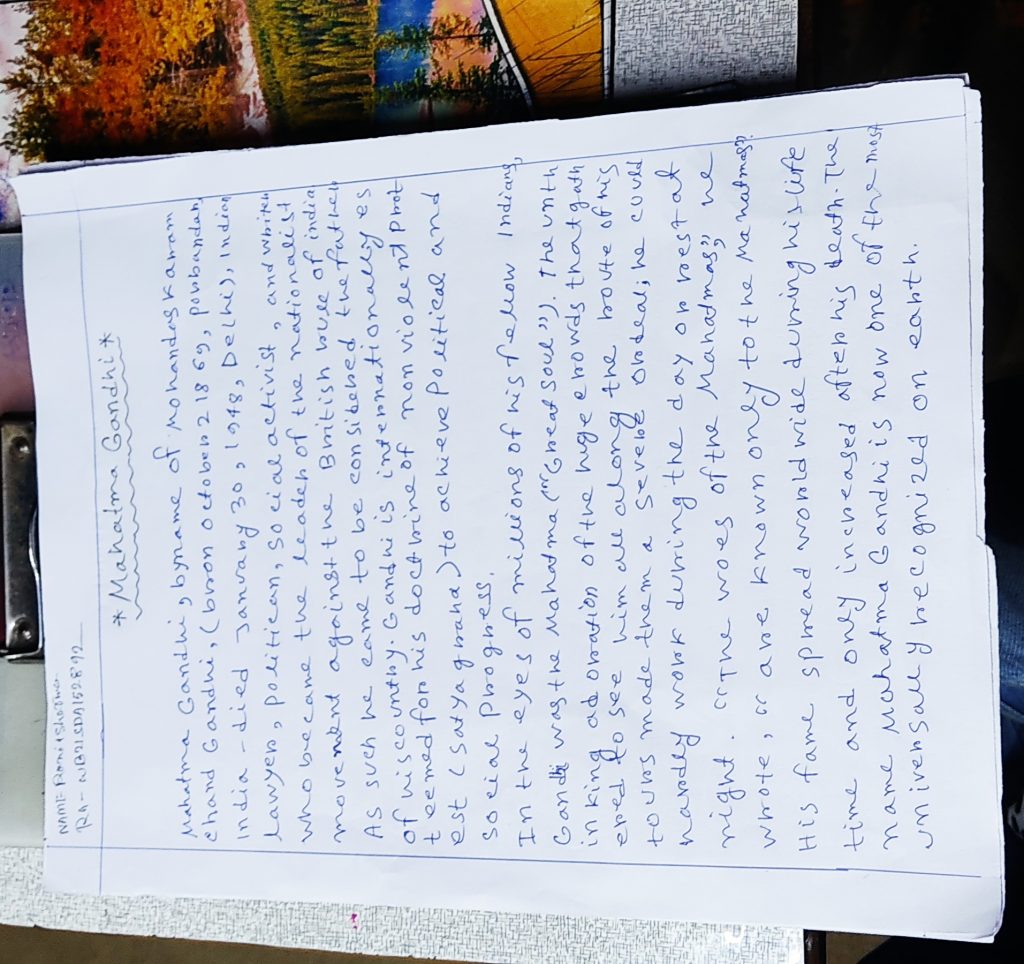 NAME: Ronit Shootha
RA - WB21SDA152892
* Mahatma Gandhi *
Mahatma Gandhi, byname of Mohandas karam
chand Gandhi, (bron october 2 1869, porbandar,
India - died January 30, 1948, Delhi), Indian
lawyer, politican, social activist, and writer
who became the leader of the nationalist
movement against the British rule of india
As such he came to be considered the father
of his country. Gandhi is internationally es
teemed for his doctrine of non violent prot
est (satyagraha) to achieve political and
social progress.
In the eyes of millions of his fellow Indians,
Gandhi was the Mahatma ("Great soul"). The unth
inking adoration of the huge crowds that gath
ered to see him all along the route of his
tours made them a severe ordeal; he could
hardly work during the day or rest at
night. "The woes of the Mahatmas," he
wrote, "are known only to the Mahatmas".
His fame spread worldwide during his life
time and only increased after his death. The
name Mahatma Gandhi is now one of the most
universally recognized on earth.